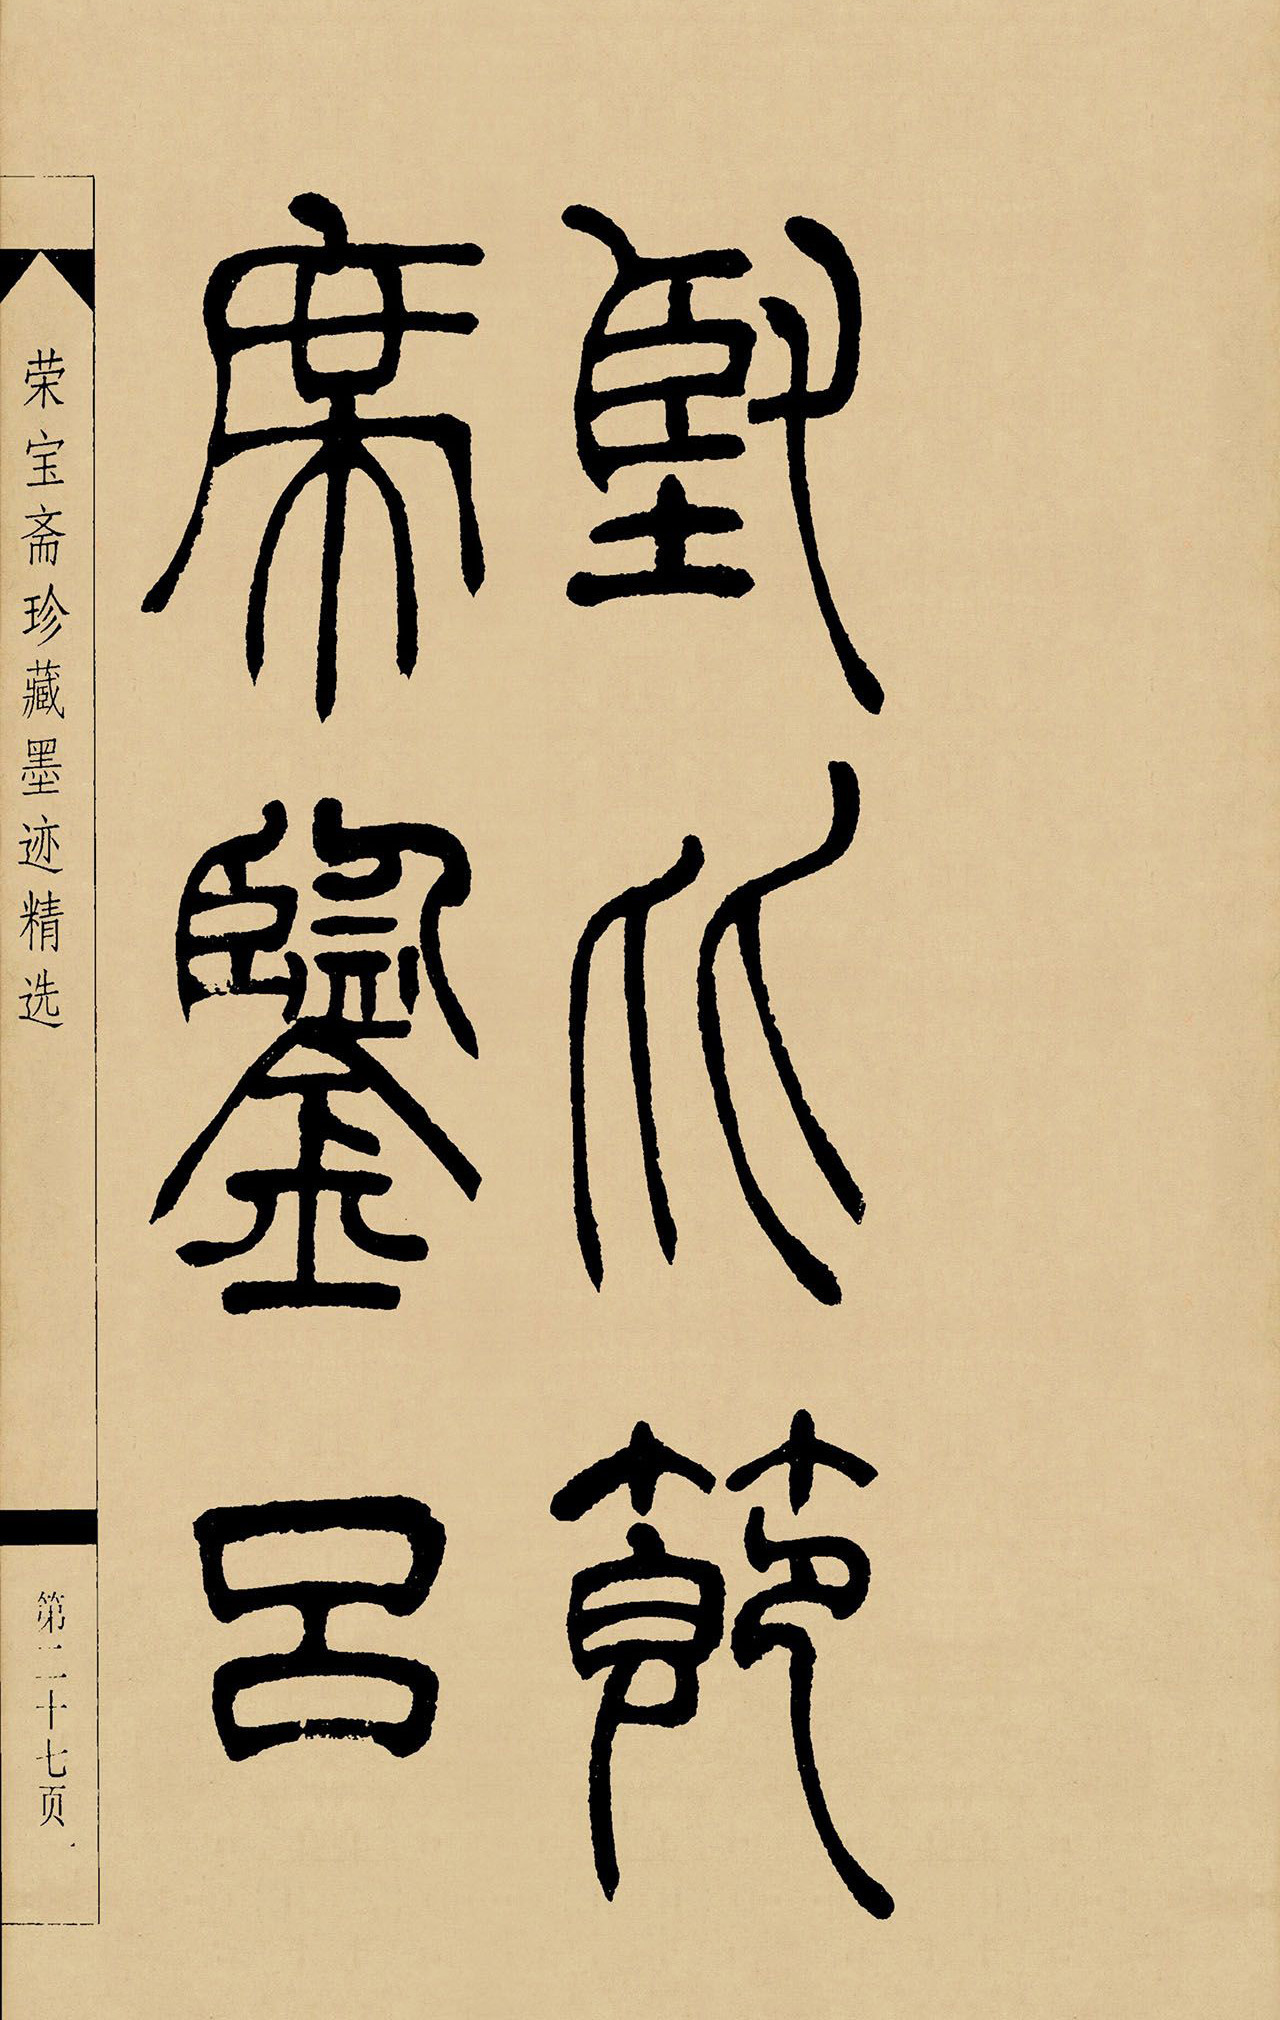 堅从節
席鑒呂
荣宝斋珍藏墨迹精选
第二十七页